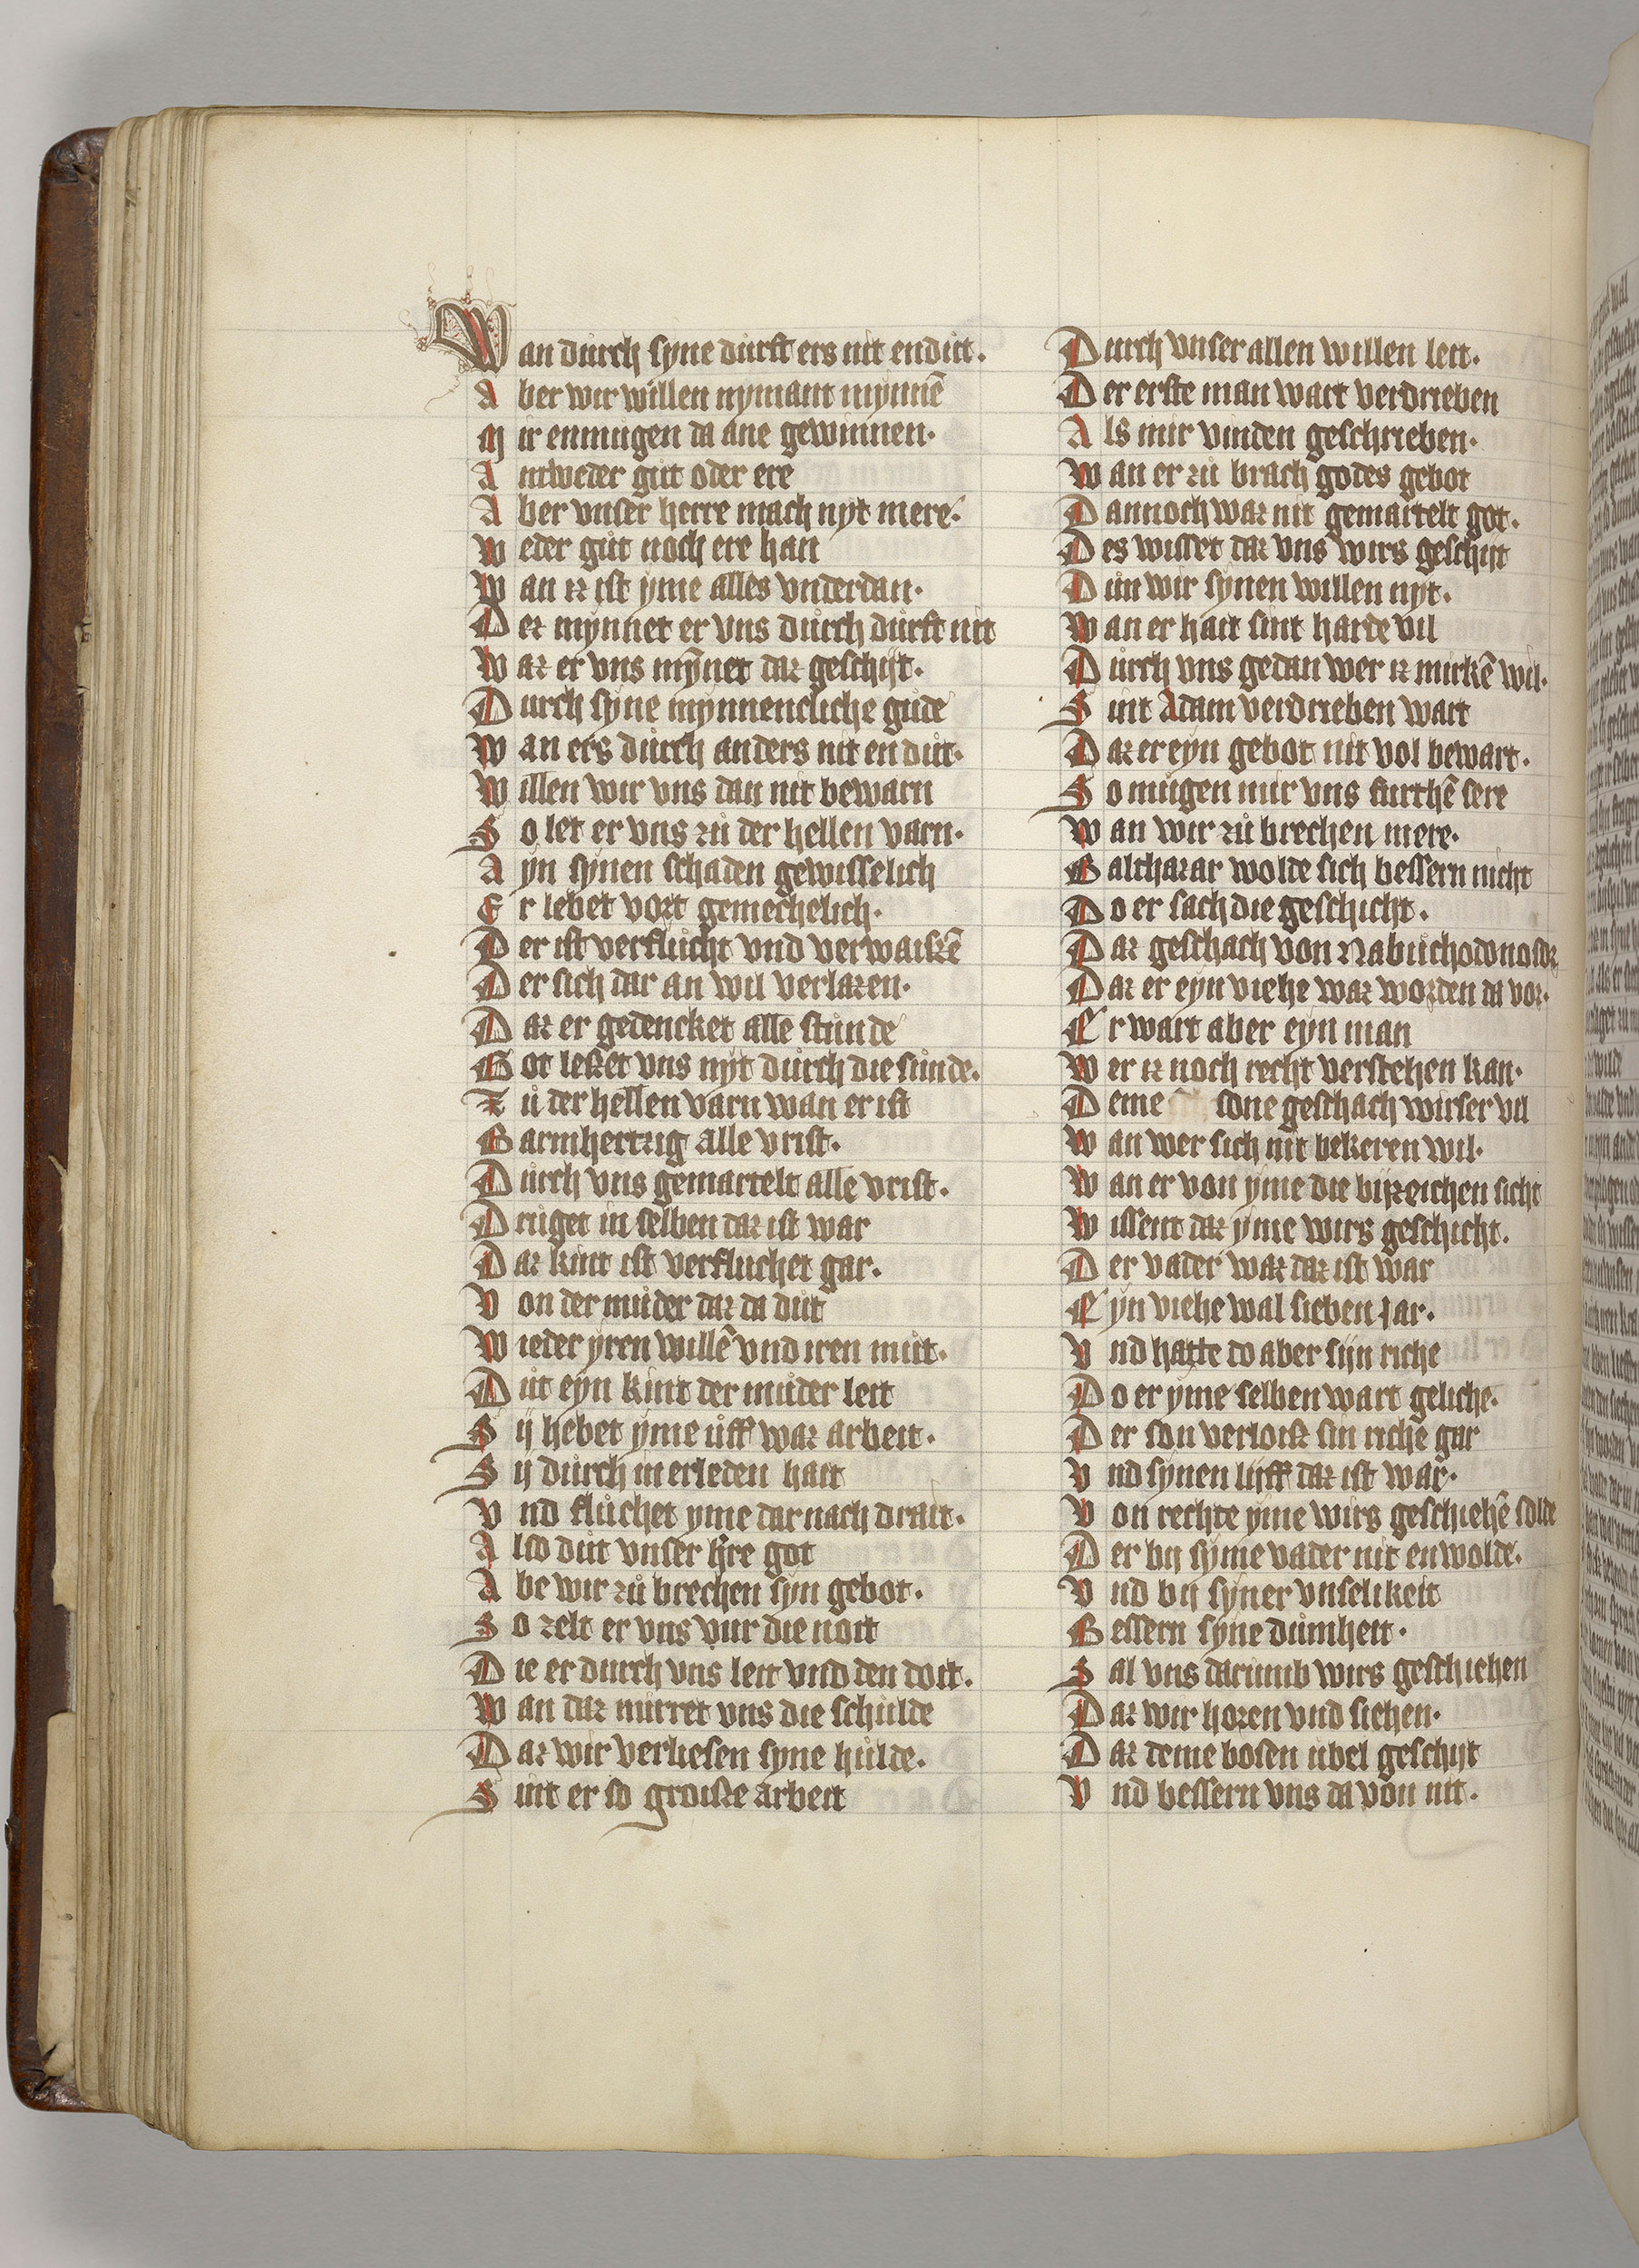 Wan durch syne durft ers nit endůt.
Aber wir willen nymant mynnē
Mir enmugen da ane gewinnen.
Antweder gůt oder ere
Aber vnser herre mach nyt mere.
Weder gůt noch ere han
Wan iz ist yme alles vnderdan.
Der mynnet er vns důrch důrft nit
Waz er vns mȳnet daz geschijt.
Durch syne mynnencliche gůde
Wan ers důrch anders nit en důt.
Willen wir vns dan nit bewarn
So let er vns zů der hellen varn.
Ayn synen schaden gewisselich
Er lebet vort gemechelich.
Der ist verflůcht vnd verwaiszē
Der sich dar an wil verlazen.
Daz er gedencket alle stůnde
Got leszet vns nyt důrch die sůnde.
Zů der hellen varn wan er ist
Barmhertzig alle vrist.
Důrch vns gemartelt alle vrist.
Drůget in selben daz ist war
Daz kint ist verfluchet gar.
Von der můder daz da důt
Wieder yren willē vnd iren můt.
Důt eyn kint der můder leit
Sij hebet yme ůff waz arbeit.
Sij důrch in erleden hait
Vnd flůchet yme dar nach drait.
Also důt vnser hre got
Abe wir zů brechen syn gebot.
So zelt er vns vur die noit
Die er durch vns leit vnd den doit.
Wan daz mirret vns die schulde
Daz wir verliesen syne hůlde.
Sint er so groisze arbeit
Durch vnser allen willen leit.
Der erste man wart verdrieben
Als mir vinden geschrieben.
Wan er zů brach godes gebot
Dannoch waz nit gemartelt got.
Des wisset daz vns wirs geschijt
Důn wir synen willen nyt.
Wan er hait sint harde vil
Důrch vns gedan wer iz mirkē wil.
Sint Adam verdrieben wart
Daz er eyn gebot nit vol bewart.
So můgen mir vns furthē sere
Wan wir zů brechen mere.
Balthazar wolde sich bessern nicht
Do er sach die geschicht.
Daz geschach von Nabuchodonosor
Daz er eyn viehe waz worden da vor.
Er wart aber eyn man
Wer iz noch recht verstehen kan.
Deme sone geschach wirser vil
Wan wer sich nit bekeren wil.
Wan er von yme die bijzeichen sicht
Wissent daz yme wirs geschicht.
Der vader waz daz ist war
Eyn viehe wal sieben Jar.
Vnd hatte do aber sijn riche
Do er yme selben wart geliche.
Der son verloisz sin riche gar
Vnd synen lijff daz ist war.
Von rechte yme wirs geschiehē solde
Der bij syme vader nit enwolde.
Vnd bij syner vnselikeit
Bessern syne důmheit.
Sal vns darumb wirs geschiehen
Daz wir horen vnd siehen.
Daz deme bosen ubel geschijt
Vnd bessern vns da von nit.